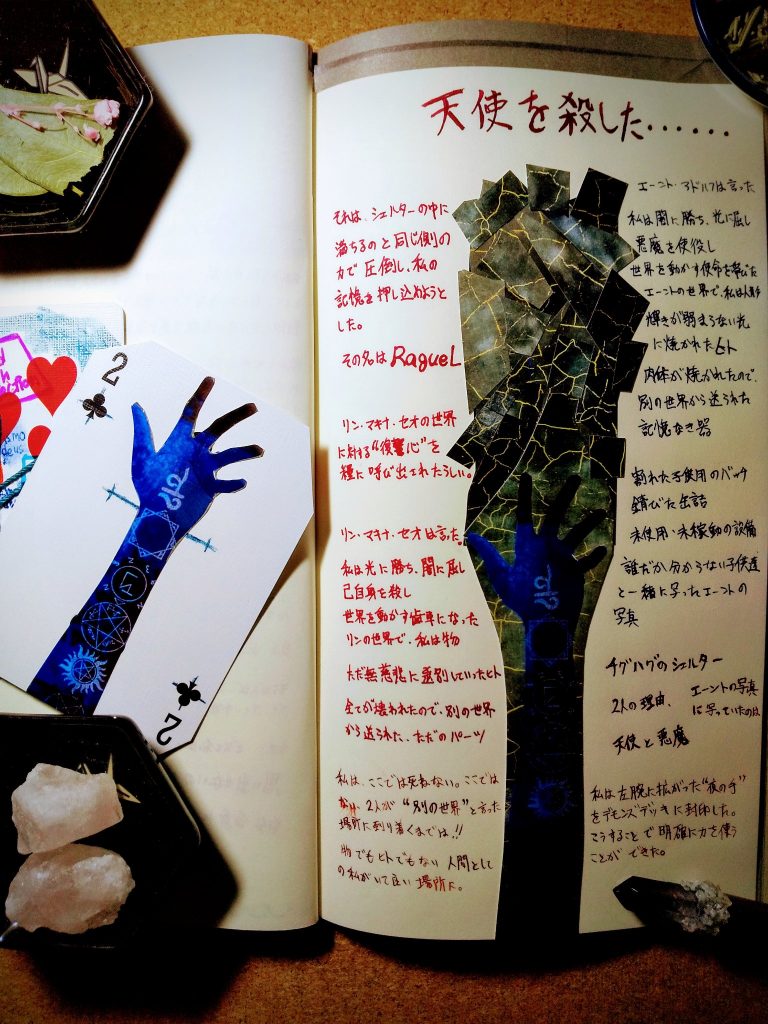 天使を殺した……
それは、シェルターの中に
満ちるのと同じ側の
力で圧倒し、私の
記憶を押し込めようと
した。
その名は RagueL
リン・マキナ・セオの世界
に対する“復讐心”を
種に呼び出されたらしい。
リン・マキナ・セオは言った。
私は光に勝ち、闇に屈し
己自身を殺し
世界を動かす歯車になった
リンの世界で、私は物
ただ無慈悲に選別していったヒト
全てが壊われたので、別の世界
から送られた、ただのパーツ
私は、ここでは死ねない。ここでは
ない、2人が“別の世界”と言った
場所に到り着くまでは!!
物でもヒトでもない 人間として
の私がいて良い場所に。
エーント・アドルフは言った
私は闇に勝ち、光に屈し
悪魔を使役し
世界を動かす使命を帯びた
エーントの世界で、私は
輝きが弱まらない光
に焼かれたヒト
肉体が焼かれたので、
別の世界から送られた
記憶なき器
割れた子供用のバッチ
錆びた缶詰
未使用・未稼動の設備
誰だか分からない子供達
と一緒に写ったエーントの
写真
チグハグのシェルター
2人の理由、
エーントの写真
に写っていたのは
天使と悪魔
私は左腕に拡がった“夜の手”
をデモンズデッキに封印した。
こうすることで明確に力を使う
ことができた。
2
2